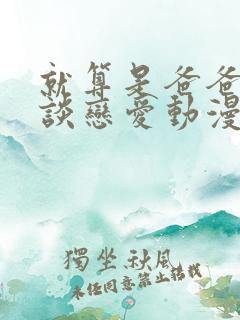 就算是爸爸
談戀愛動漫
獨坐秋風
未经同意禁止转载